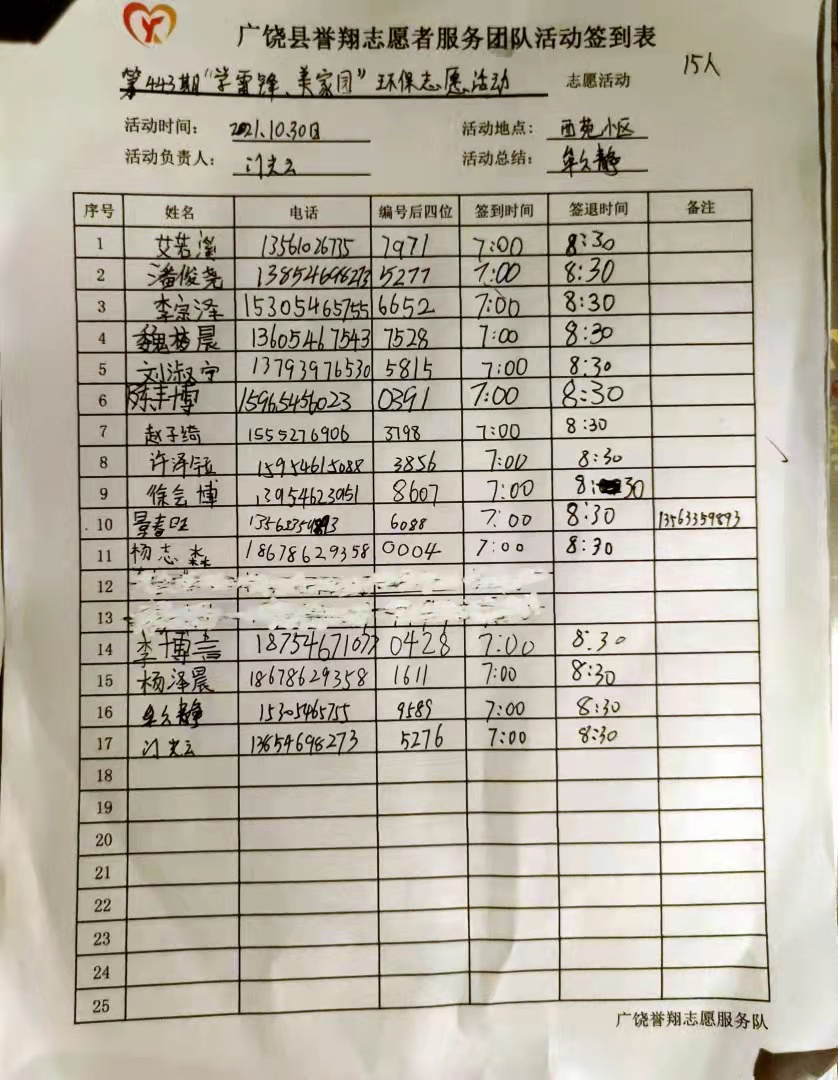 广饶县誉翔志愿者服务团队活动签到表
15人
第443期“学雷锋、美家园”环保志愿活动 志愿活动
活动时间: 2021.10.30日 活动地点: 西苑小区
活动负责人: 门光云 活动总结: 牟久静
序号 姓名 电话 编号后四位 签到时间 签退时间 备注
1 艾若溪 13561026735 7971 7:00 8:30
2 潘俊尧 13854698273 5277 7:00 8:30
3 李宗泽 15305465755 6652 7:00 8:30
4 魏梓晨 13605467543 7528 7:00 8:30
5 刘淑宁 13793976530 5815 7:00 8:30
6 陈丰博 15965456023 0391 7:00 8:30
7 赵子绮 1555276906 3798 7:00 8:30
8 许泽 15954615088 3856 7:00 8:30
9 徐会博 13954623051 8607 7:00 8:30
10 景春旺 6088 7:00 8:30 13563359893
11 杨志淼 18678629358 0004 7:00 8:30
12
13
14 李博 0428 7:00 8:30
15 杨泽晨 18678629358 1611 7:00 8:30
16 牟久静 15305465755 9589 7:00 8:30
17 门光云 13854698273 5276 7:00 8:30
18
19
20
21
22
23
24
25
广饶誉翔志愿服务队